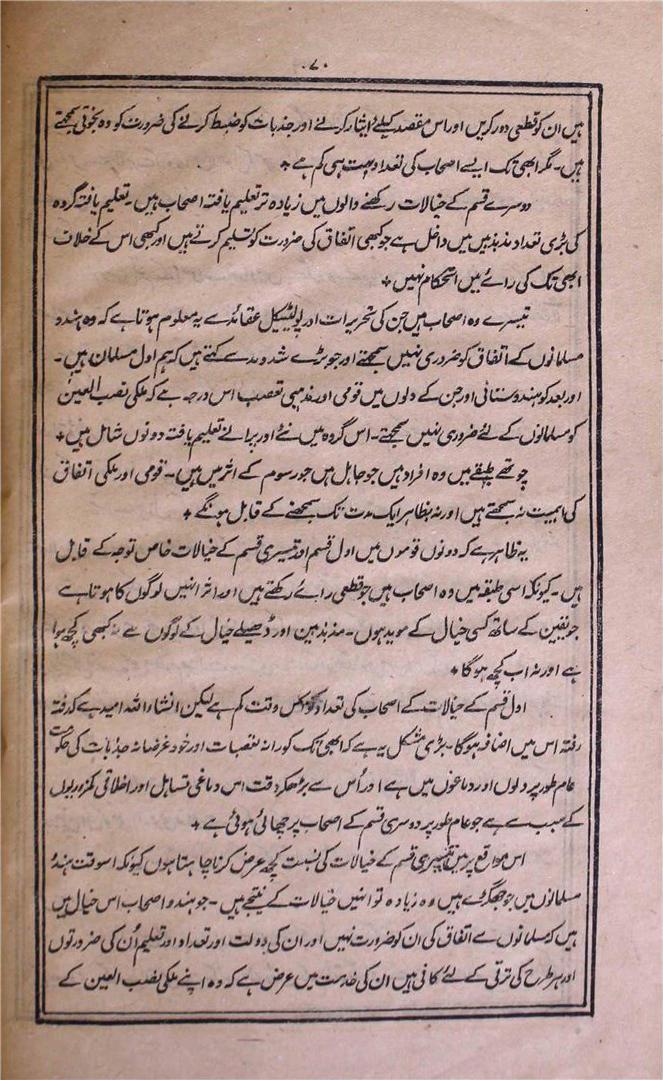 ۷۰
ہیں ان کو قطعی دور کریں اور اس مقصد کیلئے ایثار کرنے اور جذبات کو ضبط کرنے کی ضرورت کو وہ بخوبی سمجھتے
ہیں۔ مگر ابھی تک ایسے اصحاب کی تعداد بہت ہی کم ہے +
دوسرے قسم کے خیالات رکھنے والوں میں زیادہ تر تعلیم یافتہ اصحاب ہیں۔ تعلیم یافتہ گروہ
کی بڑی تعداد مذبذبین میں داخل ہے جو کبھی اتفاق کی ضرورت کو تسلیم کرتے ہیں اور کبھی اس کے خلاف
ابھی تک کی رائے میں استحکام نہیں +
تیسرے وہ اصحاب ہیں جن کی تحریرات اور پولٹیکل عقائد سے یہ معلوم ہوتا ہے کہ وہ ہندو
مسلمانوں کے اتفاق کو ضروری نہیں سمجھتے اور جو بڑے شد و مد سے کہتے ہیں کہ ہم اول مسلمان ہیں۔
اور بعد کو ہندوستانی اور جن کے دلوں میں قومی اور مذہبی تعصب اس درجہ ہے کہ ملکی نصب العین
کو مسلمانوں کے لئے ضروری نہیں سمجھتے۔ اس گروہ میں نئے اور پرانے تعلیم یافتہ دونوں شامل ہیں +
چوتھے طبقے میں وہ افراد ہیں جو جاہل ہیں جو رسوم کے اثر میں ہیں۔ قومی اور ملکی اتفاق
کی اہمیت نہ سمجھتے ہیں اور نہ بظاہر ایک مدت تک سمجھنے کے قابل ہونگے +
یہ ظاہر ہے کہ دونوں قوموں میں اول قسم اور تیسری قسم کے خیالات خاص توجہ کے قابل
ہیں۔ کیونکہ اسی طبقہ میں وہ اصحاب ہیں جو قطعی رائے رکھتے ہیں اور اثر انہیں لوگوں کا ہوتا ہے
جو یقین کے ساتھ کسی خیال کے موید ہوں۔ مذبذبین اور ڈھیلے خیال کے لوگوں سے نہ کبھی کچھ ہوا
ہے اور نہ اب کچھ ہوگا +
اول قسم کے خیالات کے اصحاب کی تعداد گو اس وقت کم ہے لیکن انشاءاللہ امید ہے کہ رفتہ
رفتہ اس میں اضافہ ہوگا۔ بڑی مشکل یہ ہے کہ ابھی تک کورانہ تعصبات اور خود غرضانہ جذبات کی حکومت
عام طور پر دلوں اور دماغوں میں ہے اور اُس سے بڑھکر دقت اس دماغی تساہل اور اخلاقی کمزوریوں
کے سبب سے ہے جو عام طور پر دوسری قسم کے اصحاب پر چھائی ہوئی ہے +
اس مواقع پر میں تیسری قسم کے خیالات کی نسبت کچھ عرض کرنا چاہتا ہوں کیونکہ اسوقت ہندو
مسلمانوں میں جو جھگڑے ہیں وہ زیادہ تو انہیں خیالات کے نتیجے ہیں۔ جو ہندو اصحاب اس خیال میں
ہیں کہ مسلمانوں سے اتفاق کی ان کو ضرورت نہیں اور ان کی دولت اور تعداد اور تعلیم اُن کی ضرورتوں
اور ہر طرح کی ترقی کے لئے کافی ہیں ان کی خدمت میں عرض ہے کہ وہ اپنے ملکی نصب العین کے